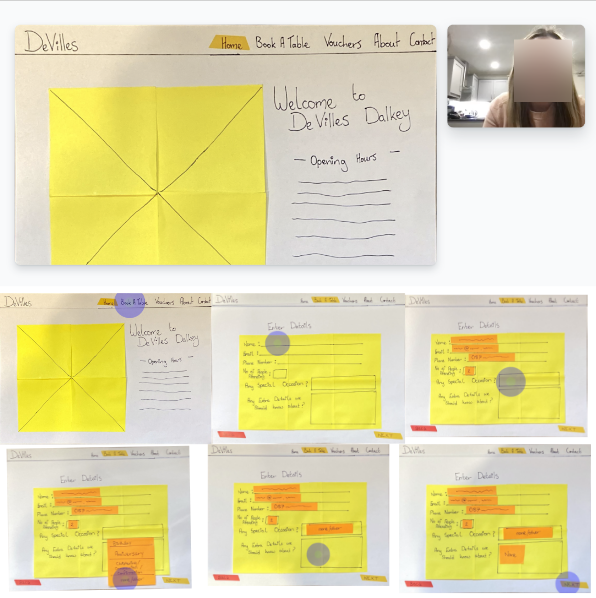 DeVilles
Home Book A Table Vouchers About Contact
Welcome to
DeVilles Dalkey
Opening Hours
DeVilles
Home Book A Table Vouchers About Contact
Welcome to
DeVilles Dalkey
Opening Hours
DeVilles
Home Book A Table Vouchers About Contact
Enter Details
Name:
Email:
Phone Number:
No of People
Any Special Occasion:
Any Extra Details we
Should know About?
NEXT
DeVilles
Home Book A Table Vouchers About Contact
Enter Details
Name:
Email:
Phone Number:
No of People
Any Special Occasion:
Any Extra Details we
Should know About?
NEXT
DeVilles
Home Book A Table Vouchers About Contact
Enter Details
Name:
Email:
Phone Number:
No of People
Any Special Occasion:
Anniversary
Any Extra Details we
Should know About?
DeVilles
Home Book A Table Vouchers About Contact
Enter Details
Name:
Email:
Phone Number:
No of People
Any Special Occasion:
Any Extra Details we
Should know About?
NEXT
DeVilles
Home Book A Table Vouchers About Contact
Enter Details
Name:
Email:
Phone Number:
No of People
Any Special Occasion:
Any Extra Details we
Should know About?